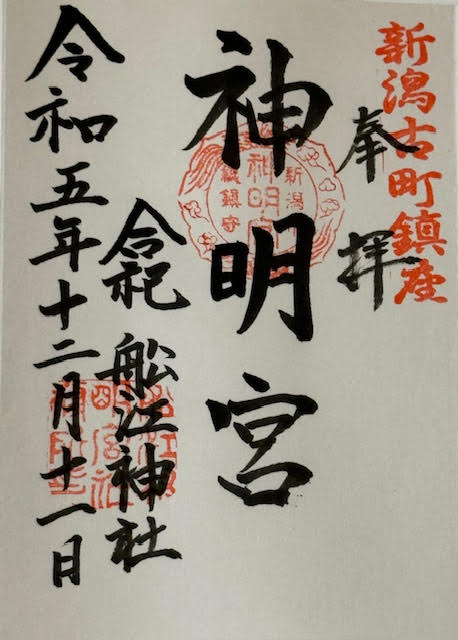 新潟古町鎮座
奉拝
新潟
神明宮
総鎮守
神明宮
合祀 舩江神社
令和五年十二月十一日